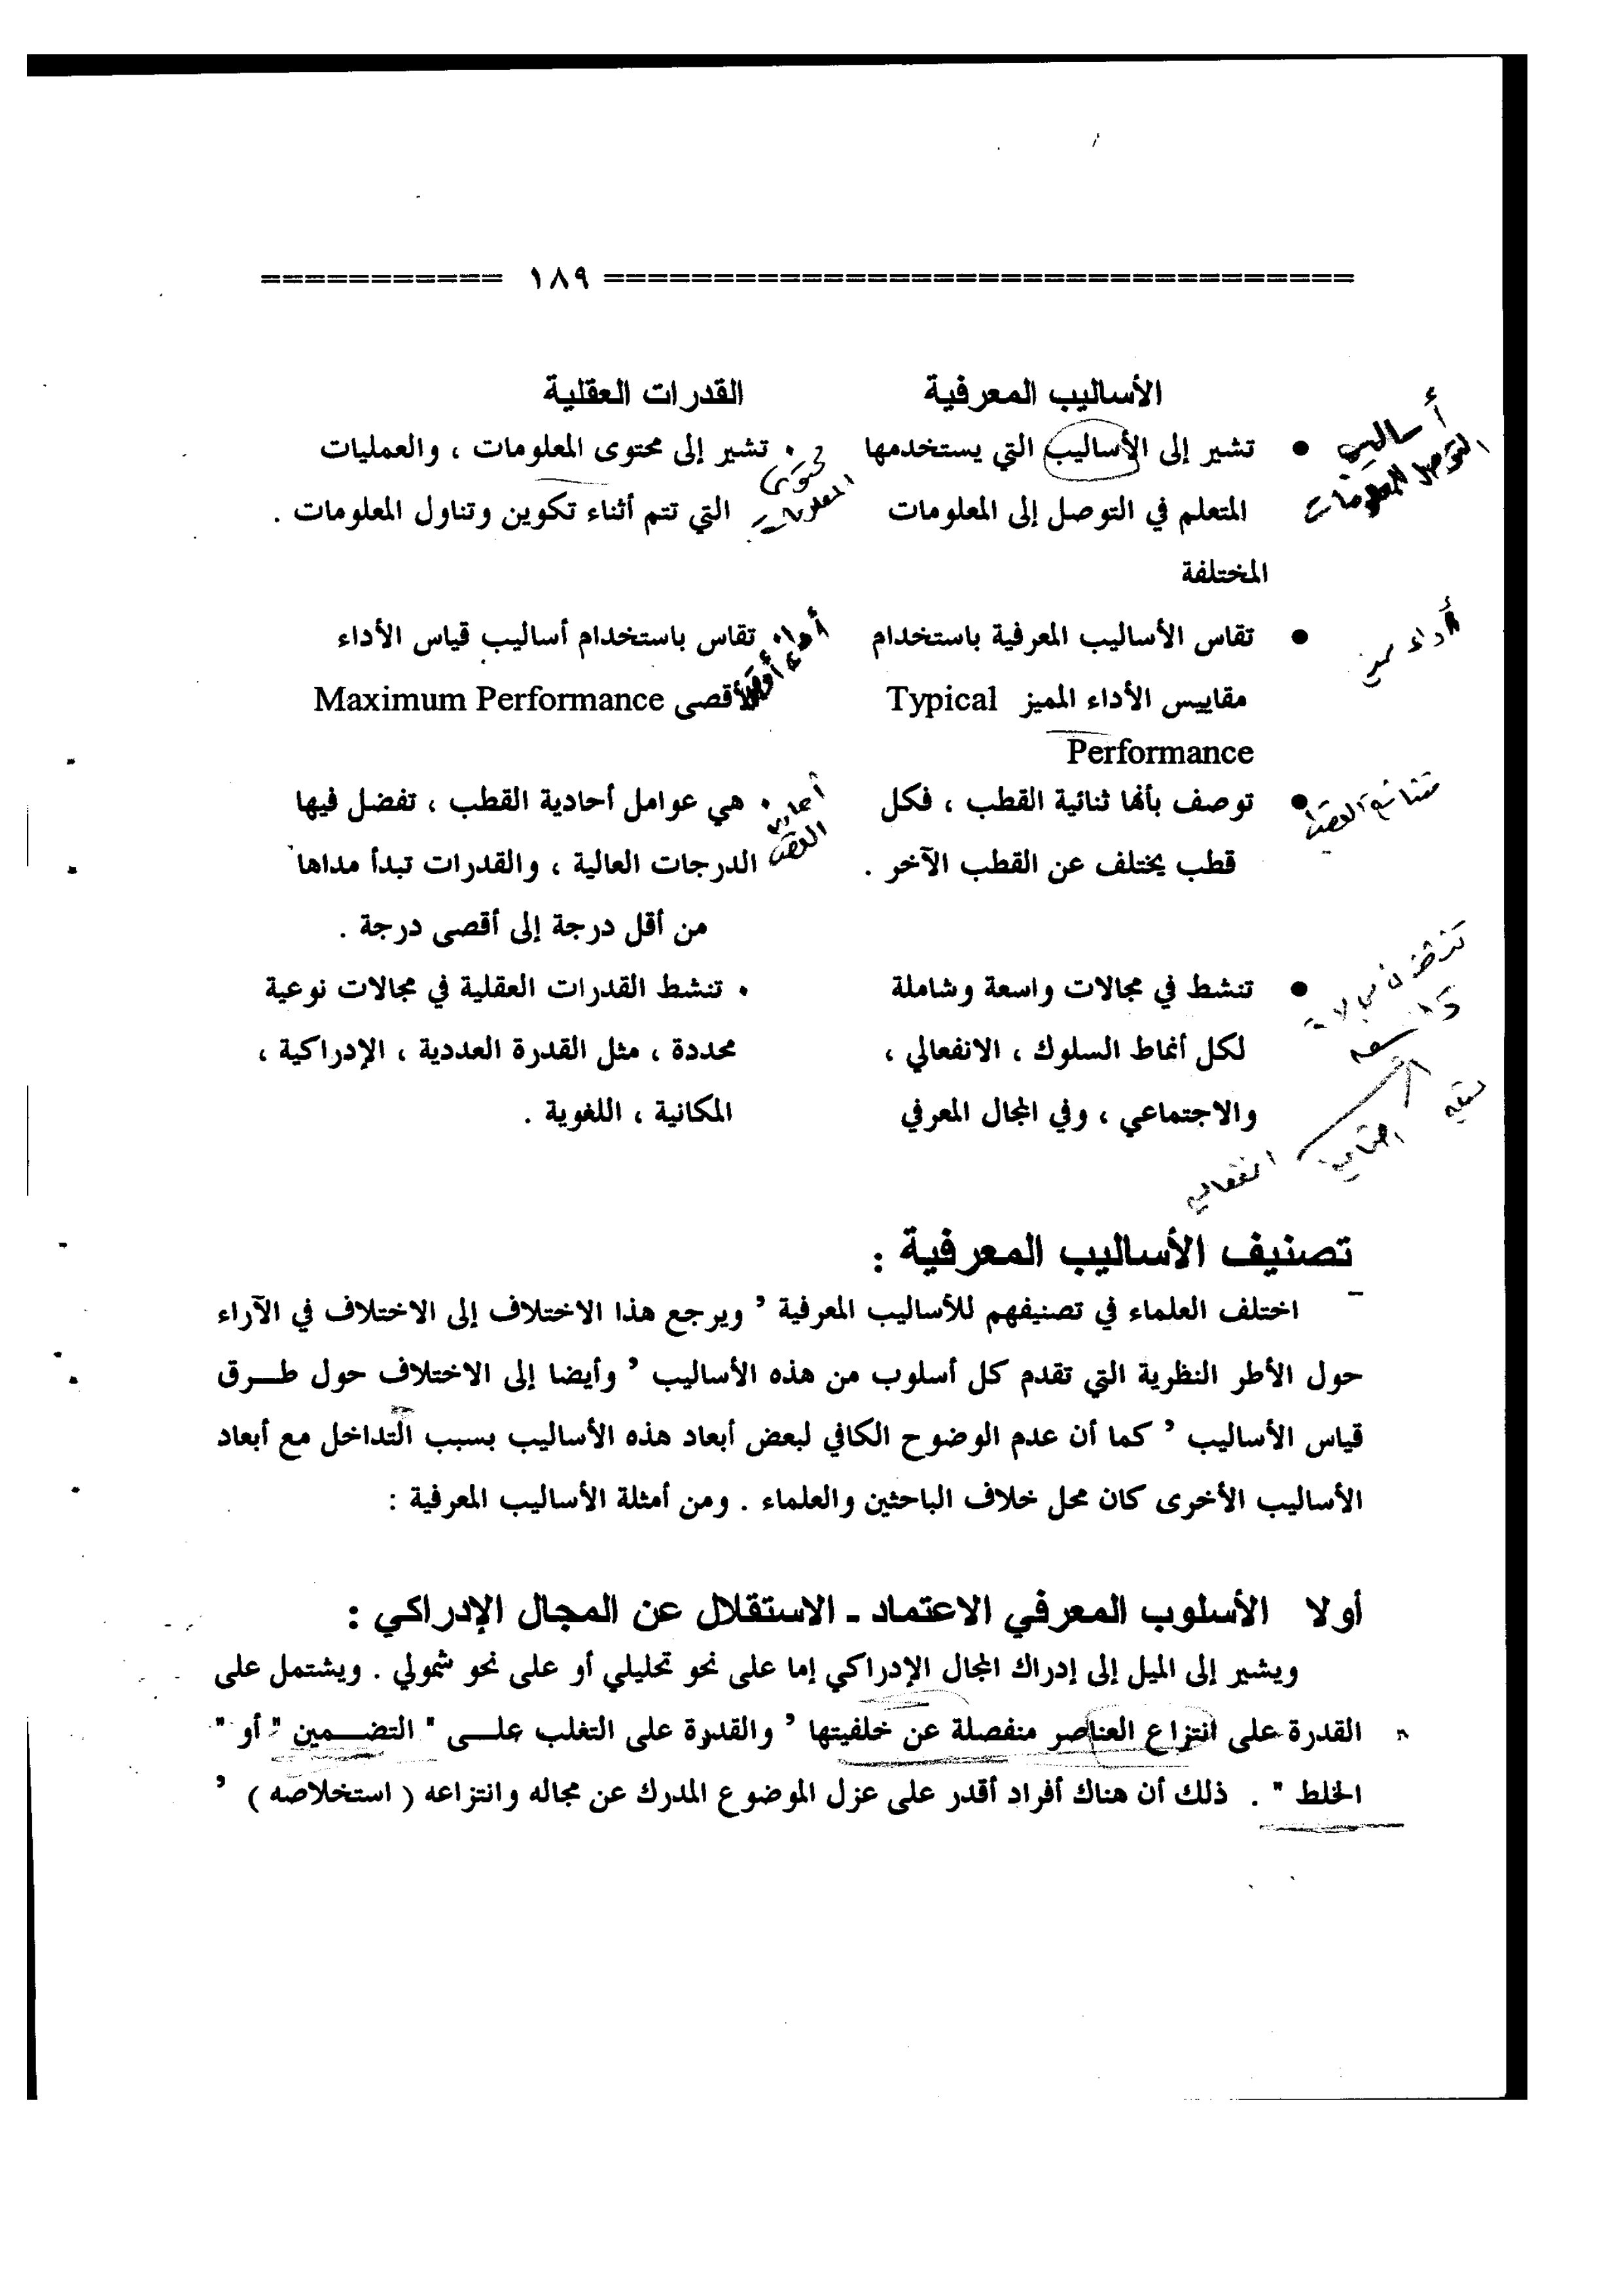 =========== ١٨٩ ==================================
الأساليب المعرفية
القدرات العقلية
• تشير إلى الأساليب التي يستخدمها
المتعلم في التوصل إلى المعلومات
المختلفة
• تشير إلى محتوى المعلومات ، والعمليات
التي تتم أثناء تكوين وتناول المعلومات .
أساليب
التوصل للمعلومات
محتوى
المعلومات
• تقاس الأساليب المعرفية باستخدام
مقاييس الأداء المميز Typical
Performance
• تقاس باستخدام أساليب قياس الأداء
الأقصى Maximum Performance
أداء مميز
• توصف بأنها ثنائية القطب ، فكل
قطب يختلف عن القطب الآخر .
• هي عوامل أحادية القطب ، تفضل فيها
الدرجات العالية ، والقدرات تبدأ مداها
من أقل درجة إلى أقصى درجة .
أحادي
القطب
• تنشط في مجالات واسعة وشاملة
لكل أنماط السلوك ، الانفعالي ،
والاجتماعي ، وفي المجال المعرفي
• تنشط القدرات العقلية في مجالات نوعية
محددة ، مثل القدرة العددية ، الإدراكية ،
المكانية ، اللغوية .
واسعة
انفعالية
تصنيف الأساليب المعرفية :
اختلف العلماء في تصنيفهم للأساليب المعرفية ’ ويرجع هذا الاختلاف إلى الاختلاف في الآراء
حول الأطر النظرية التي تقدم كل أسلوب من هذه الأساليب ’ وأيضا إلى الاختلاف حول طـــرق
قياس الأساليب ’ كما أن عدم الوضوح الكافي لبعض أبعاد هذه الأساليب بسبب التداخل مع أبعاد
الأساليب الأخرى كان محل خلاف الباحثين والعلماء . ومن أمثلة الأساليب المعرفية :
أولا الأسلوب المعرفي الاعتماد - الاستقلال عن المجال الإدراكي :
ويشير إلى الميل إلى إدراك المجال الإدراكي إما على نحو تحليلي أو على نحو شمولي . ويشتمل على
القدرة على انتزاع العناصر منفصلة عن خلفيتها ’ والقدرة على التغلب علـــى " التضـــمين " أو "
الخلط " . ذلك أن هناك أفراد أقدر على عزل الموضوع المدرك عن مجاله وانتزاعه ( استخلاصه ) ’